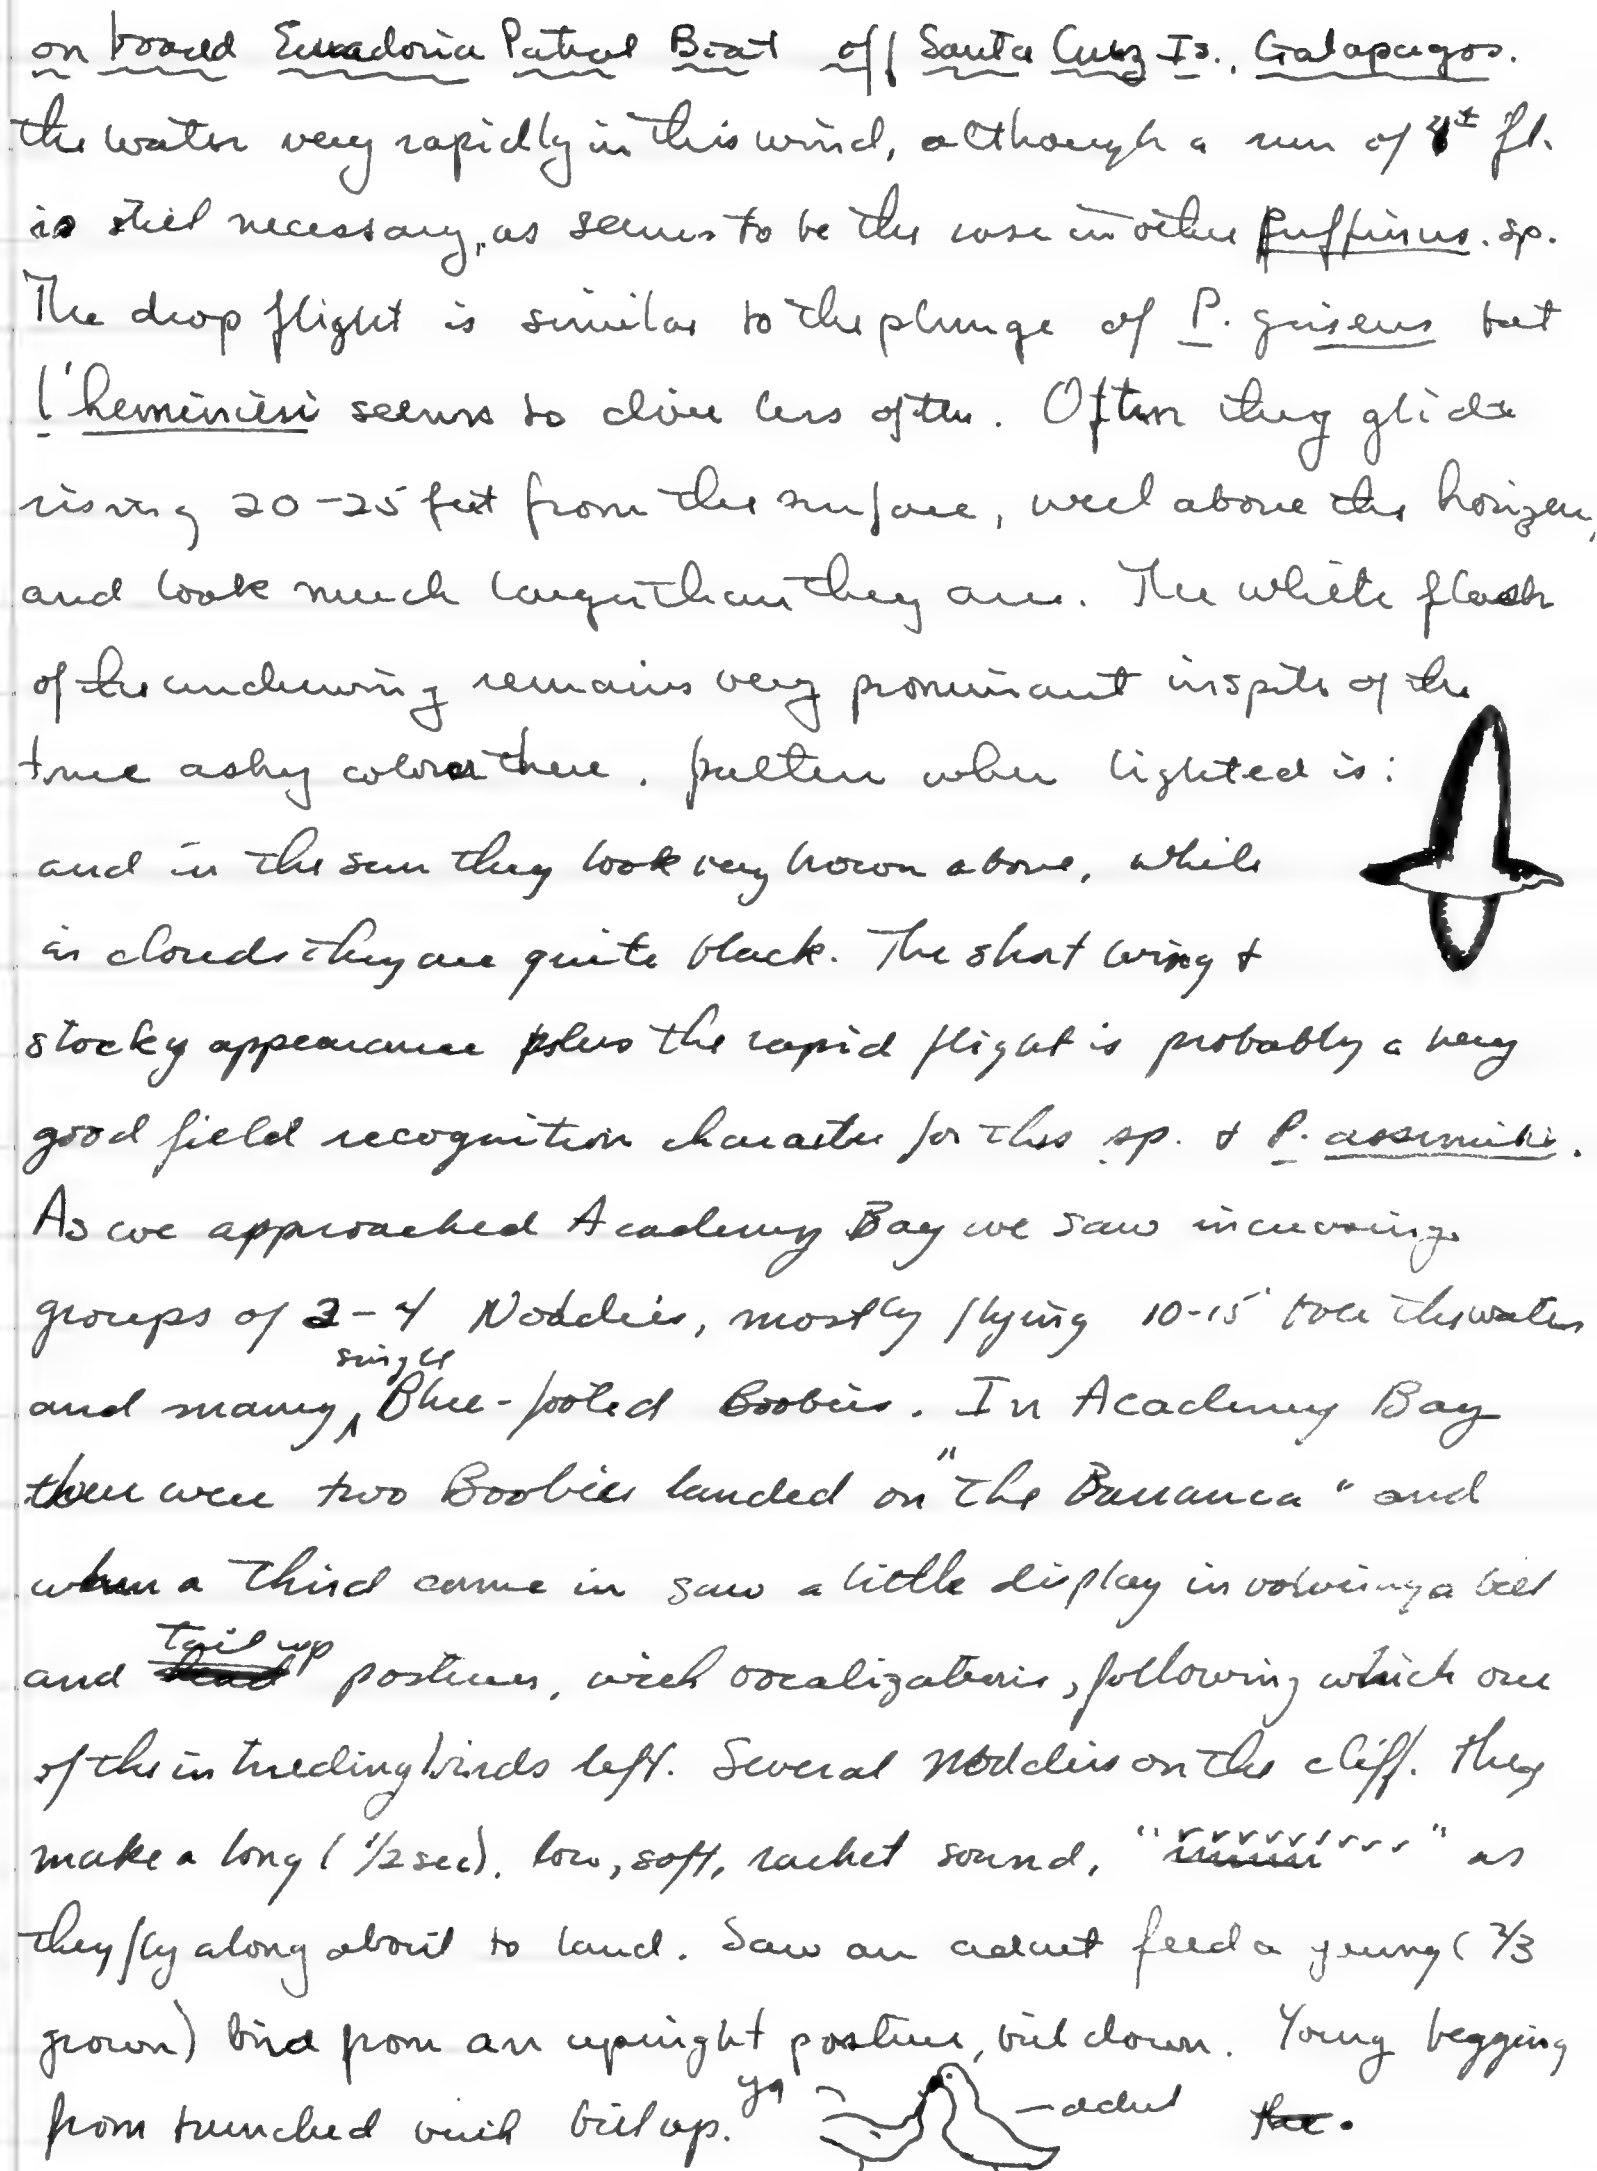 on board Ecuadoria Patrol Boat off Santa Cruz Is., Galapagos.
the water very rapidly in this wind, although a run of 4± ft.
is still necessary, as seems to be the case in other Puffinus. sp.
The drop flight is similar to the plunge of P. griseus but
l'herminieri seems to dive less often. Often they glide
rising 20-25 feet from the surface, well above the horizon,
and look much larger than they are. The white flash
of the underwing remains very prominant inspite of the
true ashy color there. pattern when lighted is:
and in the sun they look very brown above, while
in clouds they are quite black. The short wing +
stocky appearance plus the rapid flight is probably a very
good field recognition character for this sp. + P. assimilis.
As we approached Academy Bay we saw increasing
groups of 2-4 Noddies, mostly flying 10-15' over the water
single
and many ^ Blue-footed Boobies. In Academy Bay
there were two Boobies landed on "the Barranca" and
when a third came in saw a little display involving a bill
tail up
and head postures, with vocalizations, following which one
of the intruding birds left. Several Noddies on the cliff. They
make a long (1/2 sec). low, soft, rachet sound, "rrrrrrrrr" as
they fly along about to land. Saw an adult feed a young (2/3
grown) bird from an upright posture, bill down. Young begging
from hunched with bill up. yg - adult the.